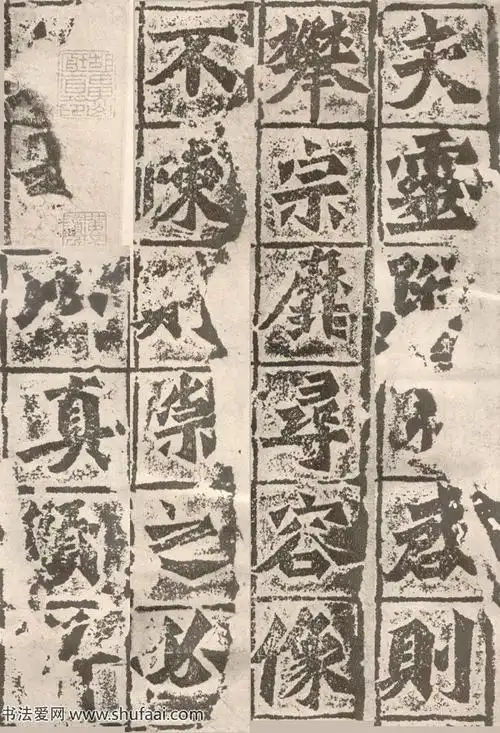 夫靈蹤啓則
攀宗靡尋容像
不陳則崇之必
以真顏
书法爱网 www.shufaai.com